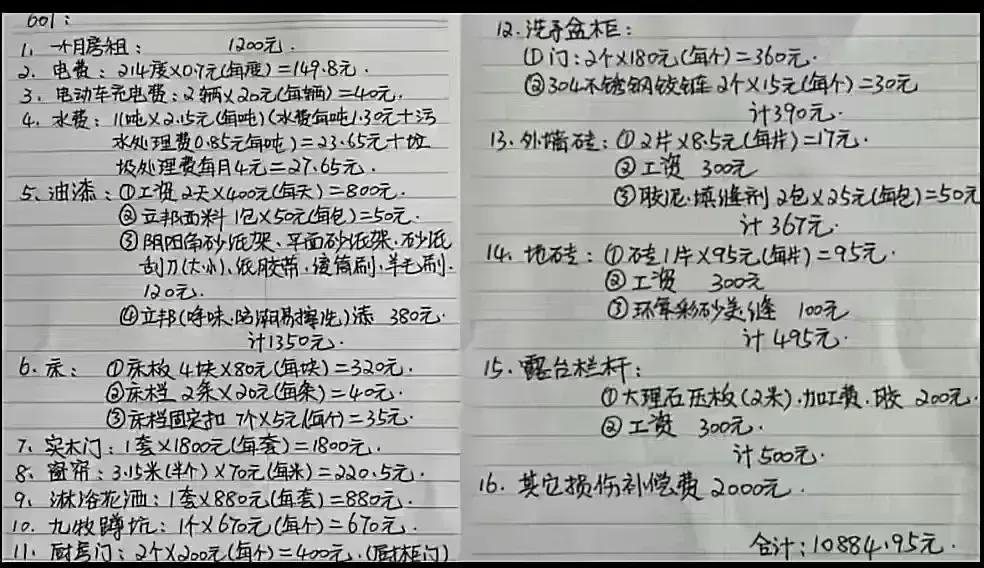 601：
1、一个月房租： 1200元.
2. 电费：214度×0.7元(每度)=149.8元.
3. 电动车充电费：2辆×20元(每辆)=40元.
4. 水费：11吨×2.15元(每吨)(水费每吨1.30元+污
水处理费0.85元每吨)=23.65元+垃
圾处理费每月4元=27.65元.
5、油漆：①工资2天×400元(每天)=800元.
②立邦面料 1包×50元(每包)=50元.
③阴阳角砂纸架、平面砂纸架、砂纸
刮刀(大小).纸胶带.滚筒刷.羊毛刷.
120元.
④立邦(净味.防潮易擦洗)漆 380元.
计1350元.
6、床： ①床板 4块×80元(每块)=320元.
②床档 2条×20元(每条)=40元.
③床档固定扣 7个×5元(每个)=35元.
7、实木门：1套×1800元(每套)=1800元.
8、窗帘：3.15米(半个)×70元(每米)=220.5元.
9、淋浴花洒：1套×880元(每套)=880元.
10、九牧蹲坑：1个×670元(每个)=670元.
11、厨房门：2个×200元(每个)=400元.(厨柜门)
12.洗手盆柜：
①门：2个×180元(每个)=360元.
②304不锈钢铰链 2个×15元(每个)=30元
计390元.
13.外墙砖：①2片×8.5元(每片)=17元.
②工资 300元
③胶泥.填缝剂 2包×25元(每包)=50元
计 367元.
14.地砖：①砖1片×95元(每片)=95元.
②工资 300元
③环氧彩砂美缝 100元
计 495元.
15.露台栏杆：
①大理石压板(2米).加工费.胶 200元.
②工资 300元.
计500元.
16.其它损伤补偿费 2000元.
合计：10884.95元.